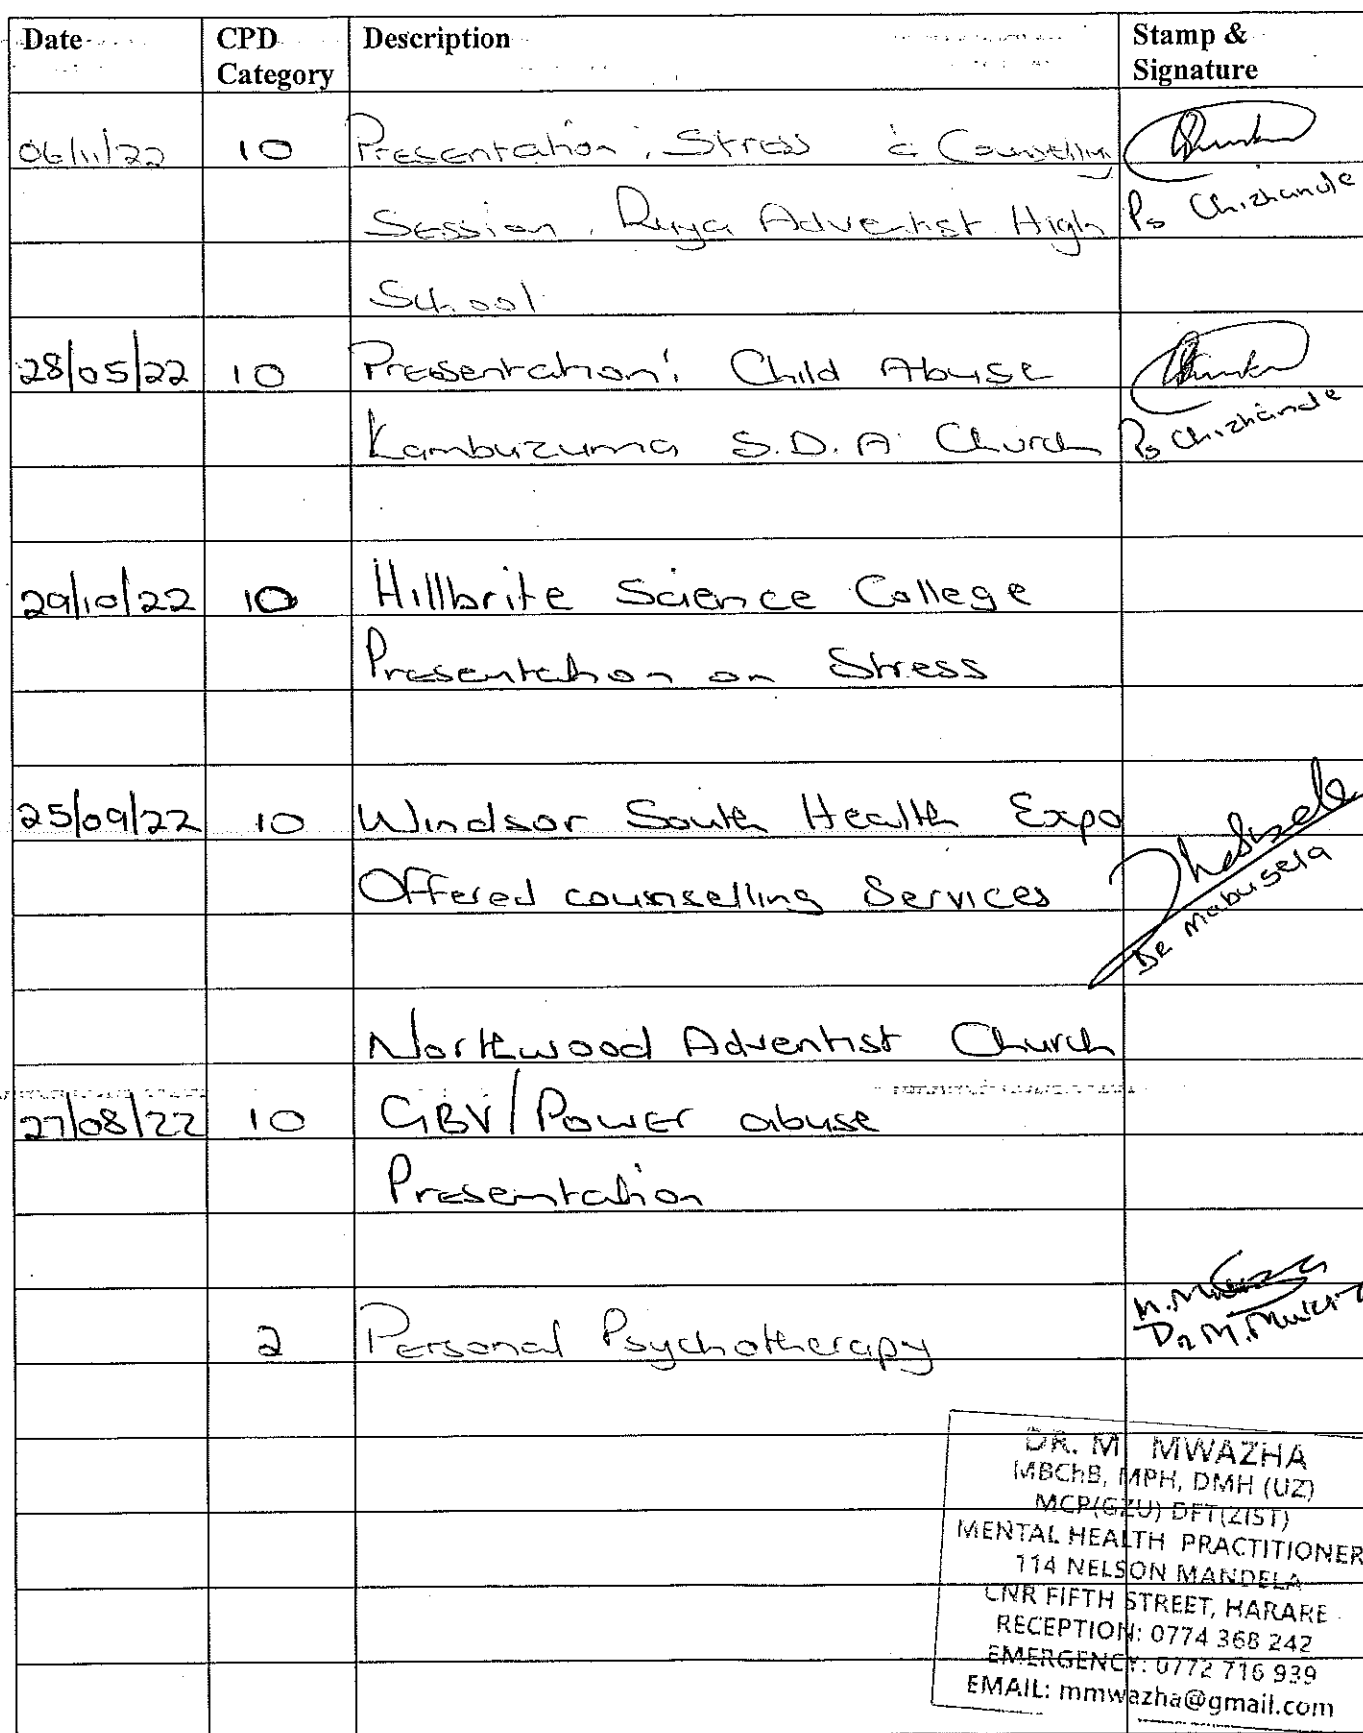 Date CPD Category Description Stamp & Signature
06/11/22 10 Presentation: Stress & Counselling
Session. Ruya Adventist High
School
Ps Chizhande
28/05/22 10 Presentation: Child Abuse
Kambuzuma S.D.A Church
Ps Chizhande
29/10/22 10 Hillbrite Science College
Presentation on Stress
25/09/22 10 Windsor South Health Expo
Offered counselling Services
Dr Mabusela
Northwood Adventist Church
27/08/22 10 GBV/Power abuse
Presentation
2 Personal Psychotherapy
DR. M MWAZHA
MBChB, MPH, DMH (UZ)
MCP(GZU) DFT(ZIST)
MENTAL HEALTH PRACTITIONER
114 NELSON MANDELA
CNR FIFTH STREET, HARARE
RECEPTION: 0774 368 242
EMERGENCY: 0772 716 939
EMAIL: mmwazha@gmail.com